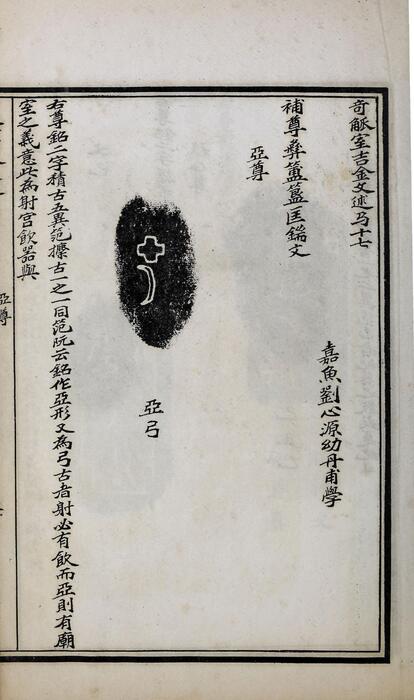 奇觚室吉金文述弓十七
嘉魚劉心源幼丹甫學
補尊彝簠簋匡鍴文
亞尊
亞弓
右尊銘二字積古五異笵攈古一之一同笵阮云銘作亞形又為弓古者射必有飲而亞則有廟
室之義意此為射宮飲器與
亞尊